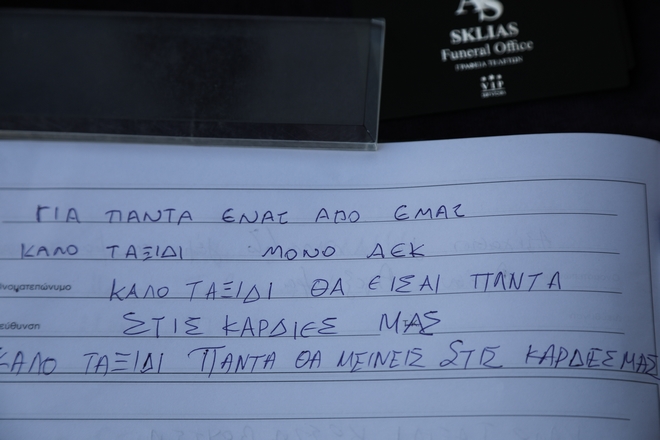 AS
SKLIAS
Funeral Office
ΓΡΑΦΕΙΑ ΤΕΛΕΤΩΝ
VIP
ΓΙΑ ΠΑΝΤΑ ΕΝΑΣ ΑΠΟ ΕΜΑΣ
ΚΑΛΟ ΤΑΞΙΔΙ ΜΟΝΟ ΑΕΚ
Ονοματεπώνυμο ΚΑΛΟ ΤΑΞΙΔΙ ΘΑ ΕΙΣΑΙ ΠΑΝΤΑ
εύθυνση ΣΤΙΣ ΚΑΡΔΙΕΣ ΜΑΣ
ΚΑΛΟ ΤΑΞΙΔΙ ΠΑΝΤΑ ΘΑ ΜΕΙΝΕΙΣ ΣΤΙΣ ΚΑΡΔΙΕΣ ΜΑΣ